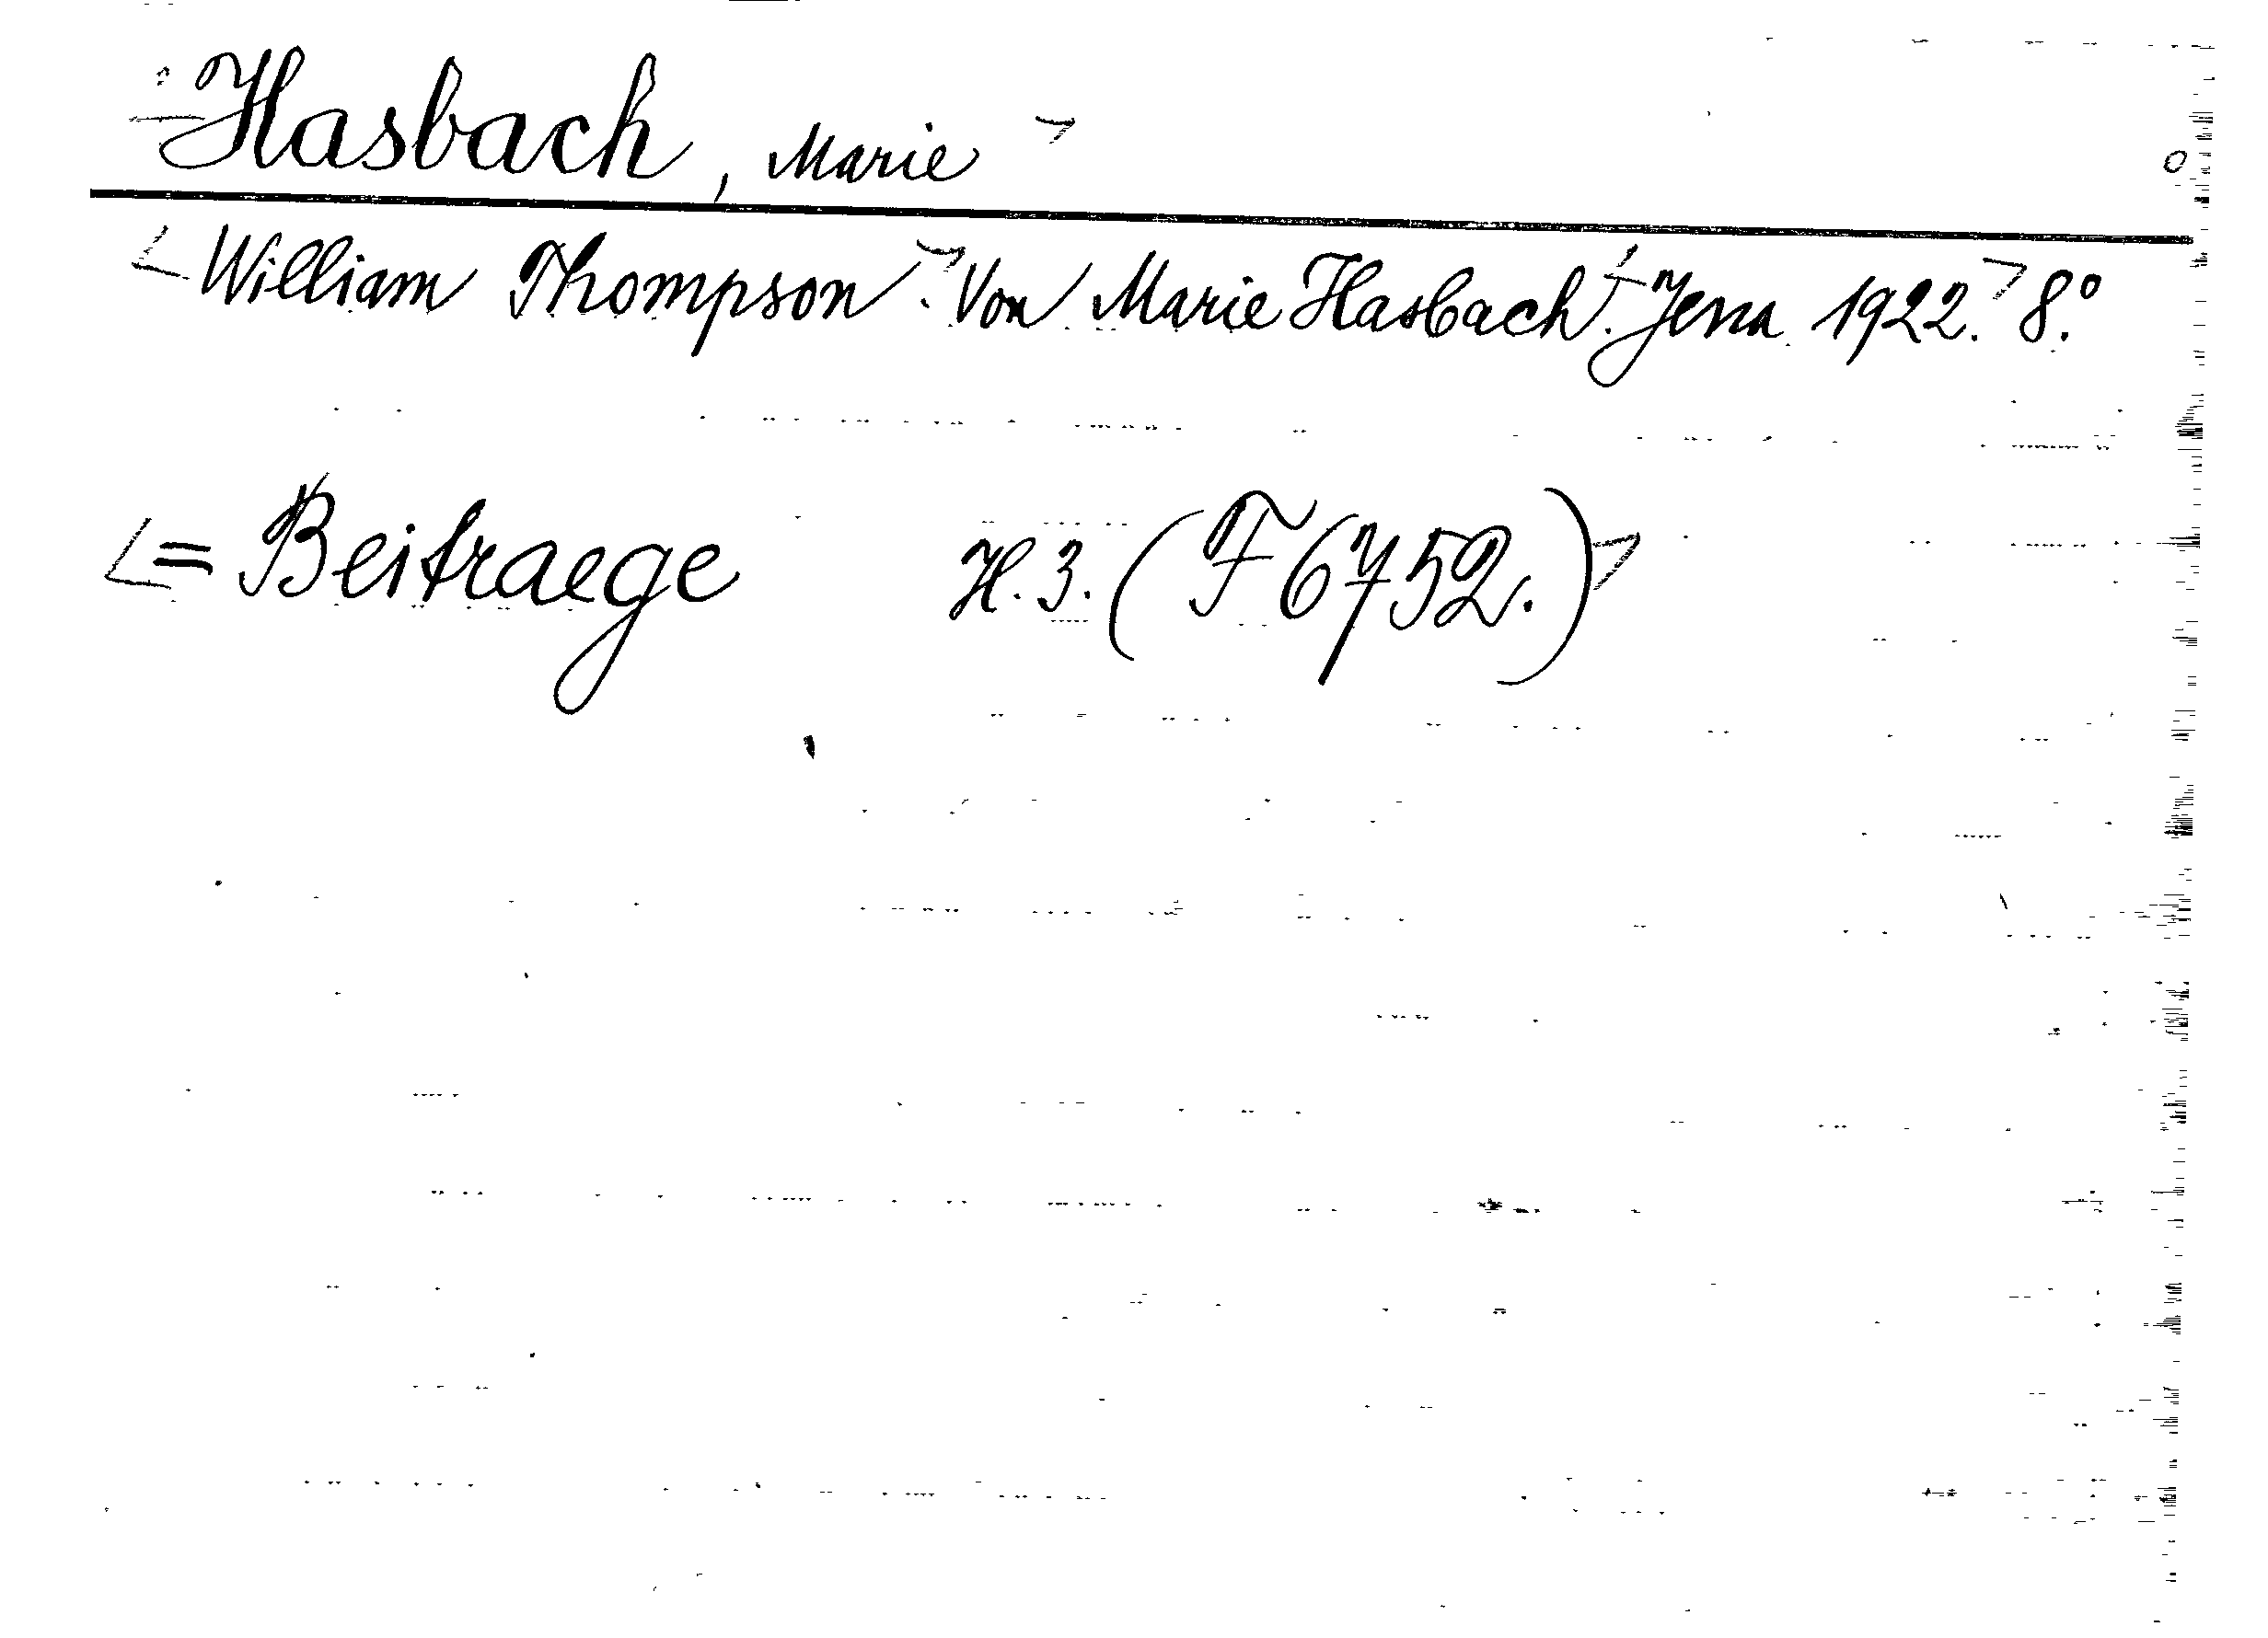 Hasbach, Marie
William Thompson. Von Marie Hasbach. Jena 1922. 8.º
= Beitraege H. 3. (F 6752.)